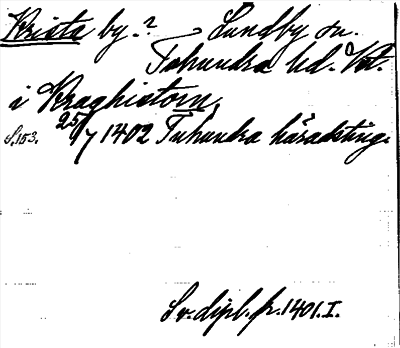 Krista by.? Lundby sn.
Tuhundra hd. Vst.
i Kraghistom,
S.153. 25/7 1402 Tuhundra häradsting.
Sv. dipl. fr. 1401. I.